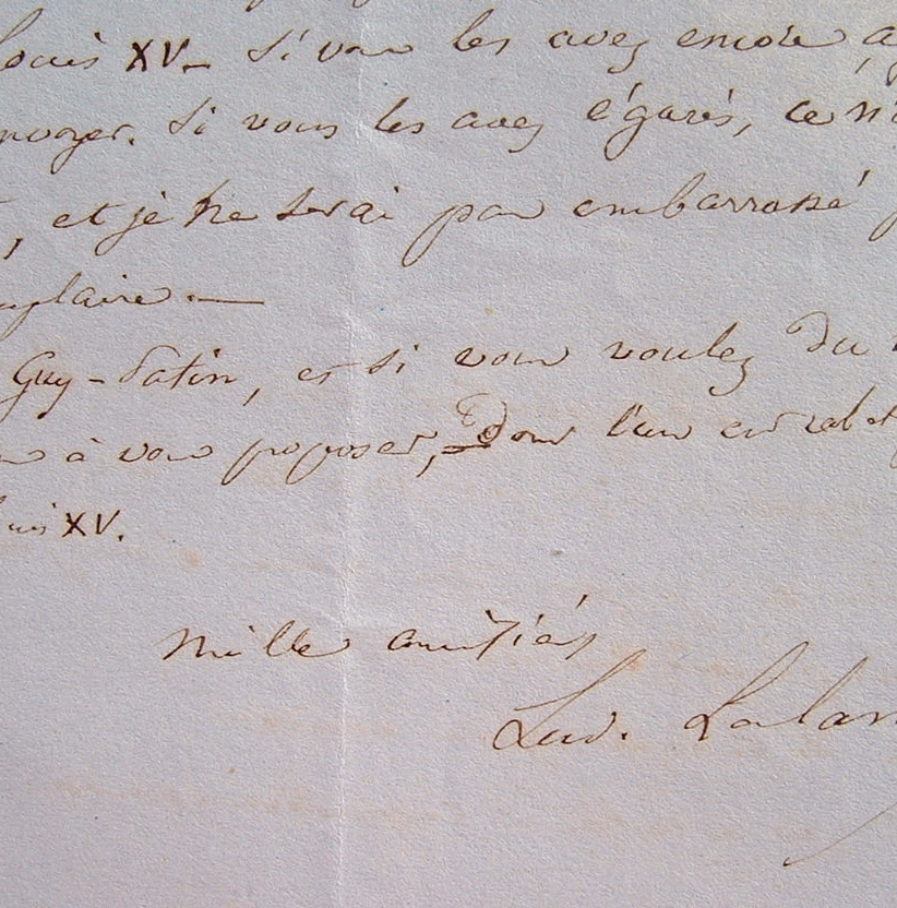 Louis XV_ Si vous les avez encore
envoyer. Si vous les avez égarés, ce n'
, et je ne serai pas embarrassé p
mplaire —
Guy-Patin, et si vous voulez du
à vous proposer, Dont l'un est relat
Louis XV.
Mille amitiés
Lud. Lalan